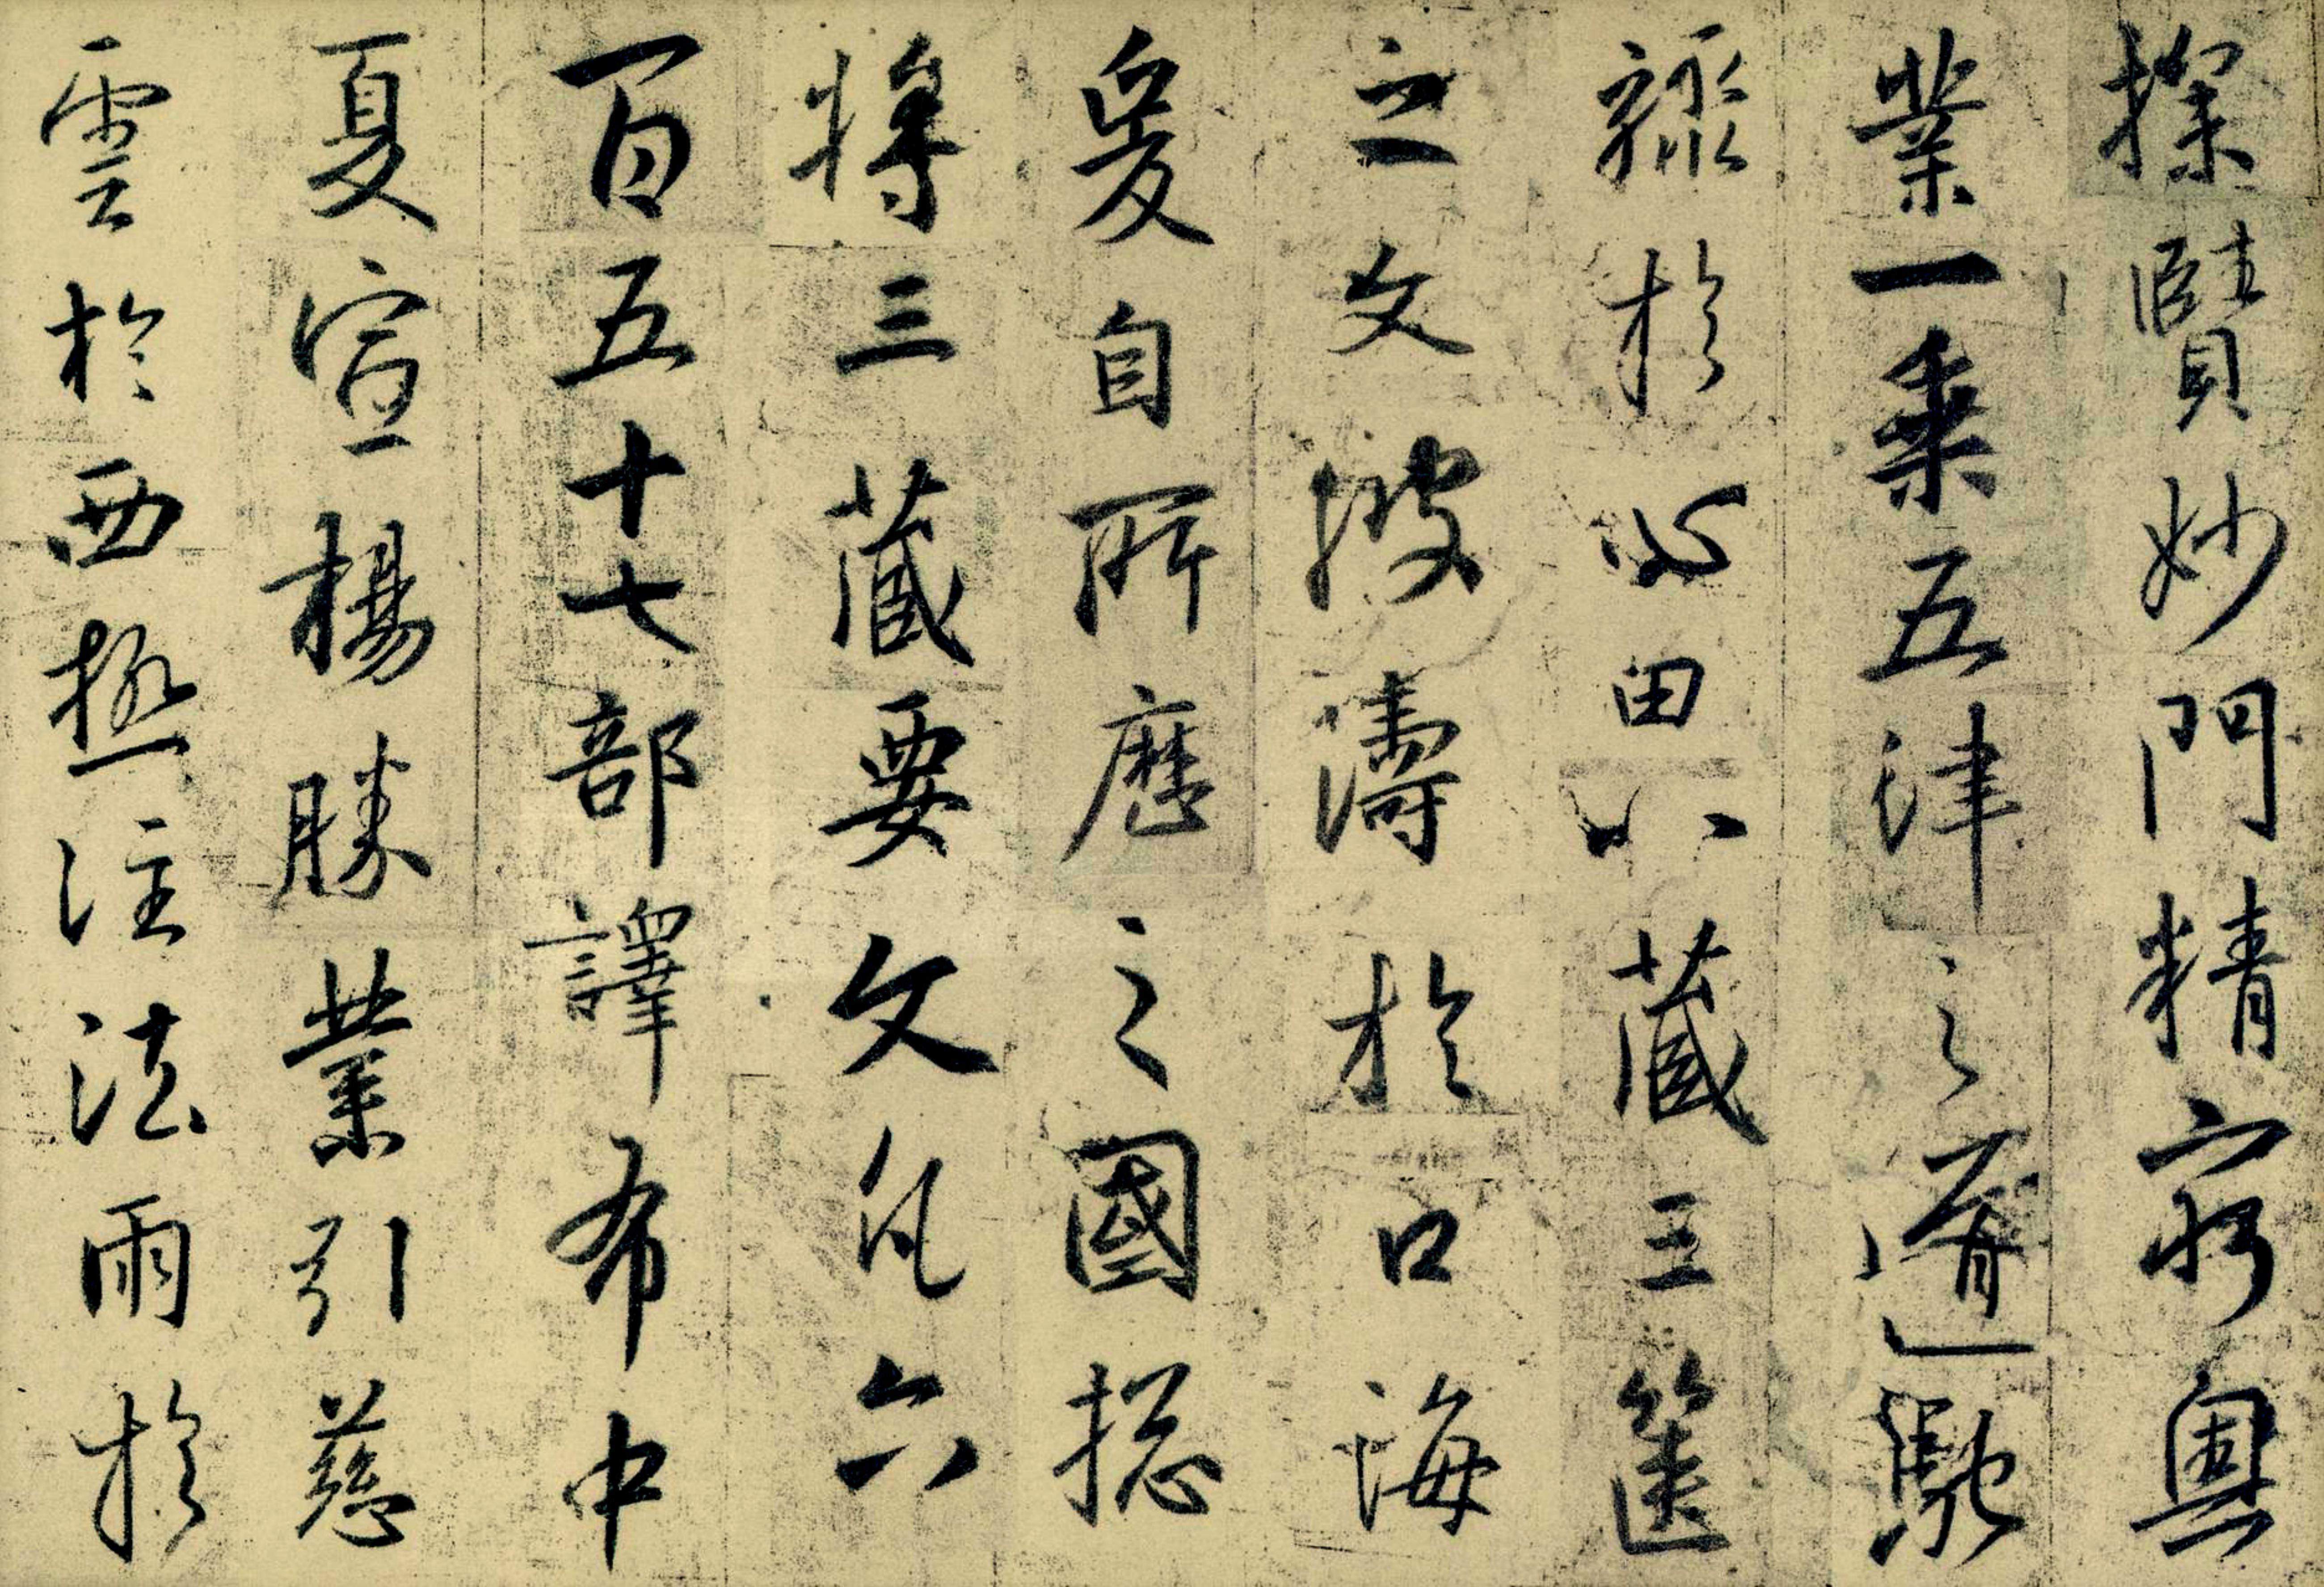 探賾妙門精窮奧
業一乘五律之道馳
驟於心田八藏三篋
之文波濤於口海
爰自所歷之國總
將三藏要文凡六
百五十七部譯布中
夏宣揚勝業引慈
雲於西極注法雨於